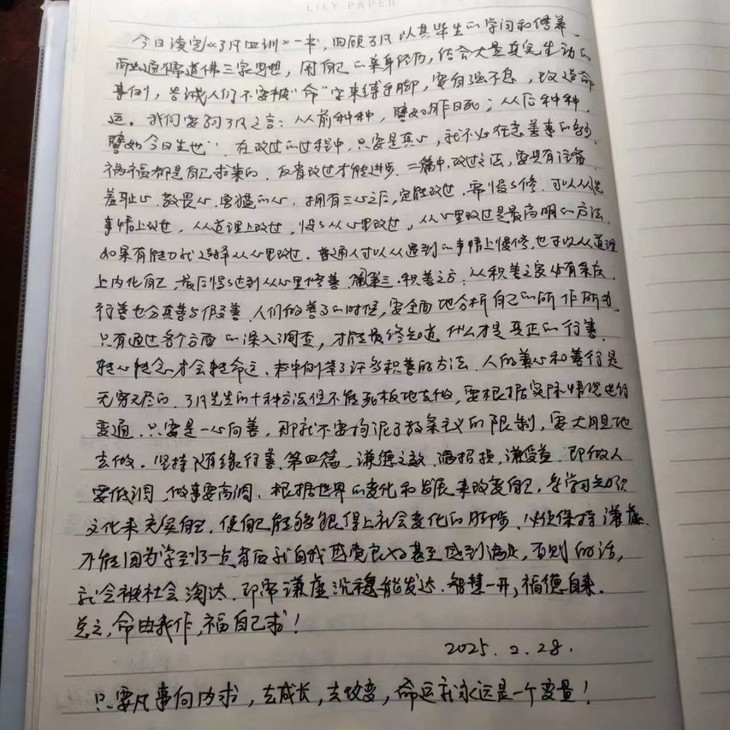 LILY PAPER
今日读完《了凡四训》一书，回顾了凡以其毕生的学问和修养，
而出通儒道佛三家思想，用自己的亲身经历，结合大量真实生动的
事例，告诫人们不要被"命"字束缚手脚，要自强不息，改造命
运。我们要到了凡之言：从前种种，譬如昨日死；从后种种，
譬如今日生也"。在改过的过程中，只要是真心，就不必任意善事的多少，
祸福都是自己求来的。反省改过才能进步。二篇中，改过之法，要具有
羞耻心、敬畏心、勇猛的心。拥有三心之后，定能改过。需慢慢修，可以从
事情上改过，从道理上改过，慢慢从心里改过，从心里改过是最高明的方法。
如果有能力就选择从心里改过。普通人可以从遇到的事情上慢修，也可以从道理
上内化自己，最后慢慢达到从心里修善。第三，积善之方：从积善之家必有余庆，
行善也分真善与假善。人们做善事的时候，要全面地分析自己的所作所为，
只有通过各个方面的深入调查，才能最终知道什么才是真正的行善，
转心转念才会转命运。书中列举了许多积善的方法，人的善心和善行是
无穷无尽的。了凡先生的十种方法但不能死板地去做，要根据实际情况进行
变通。只要是一心向善，那就不要拘泥于教条主义的限制，要大胆地
去做。坚持随缘行善。第四篇，谦德之效，满招损，谦受益。即做人
要低调，做事要高调。根据世界的变化和发展来改变自己，多学习知识
文化来充实自己，使自己能够跟得上社会变化的脚步，必使保持谦虚，
不能因为学到了一点东西就自我感觉良好甚至感到满足，否则的话，
就会被社会淘汰。即常谦虚沉稳能发达。智慧一开，福德自来。
总之，命由我作，福自己求！
2025.2.28.
只要凡事向内求，去成长，去改变，命运就永远是一个变量！